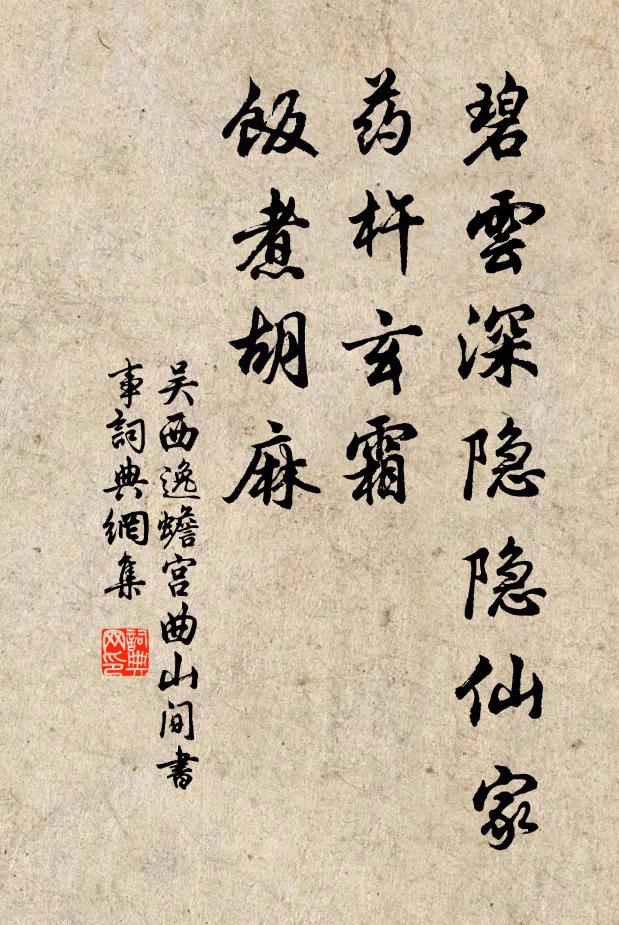 碧雲深隐隐仙家
药杵玄霜
飯煮胡麻
吴西逸蟾宫曲山间書
事詞典網集
詞典
网印